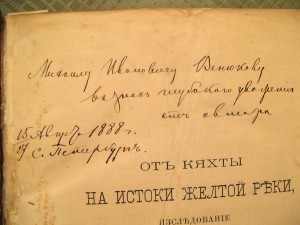 Михаилу Ивановичу Венюкову
въ знакъ глубокаго уваженія
отъ автора
15 Августа 1888 г.
С. Петербургъ.
ОТЪ КЯХТЫ
НА ИСТОКИ ЖЕЛТОЙ РѢКИ,
ИЗСЛѢДОВАНІЕ